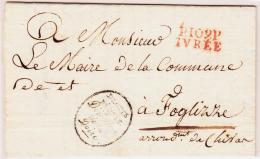 P109P
IVRÉE
A Monsieur
Le Maire de la Commune
de et
à Foglizzo
arrond.t de Chivas